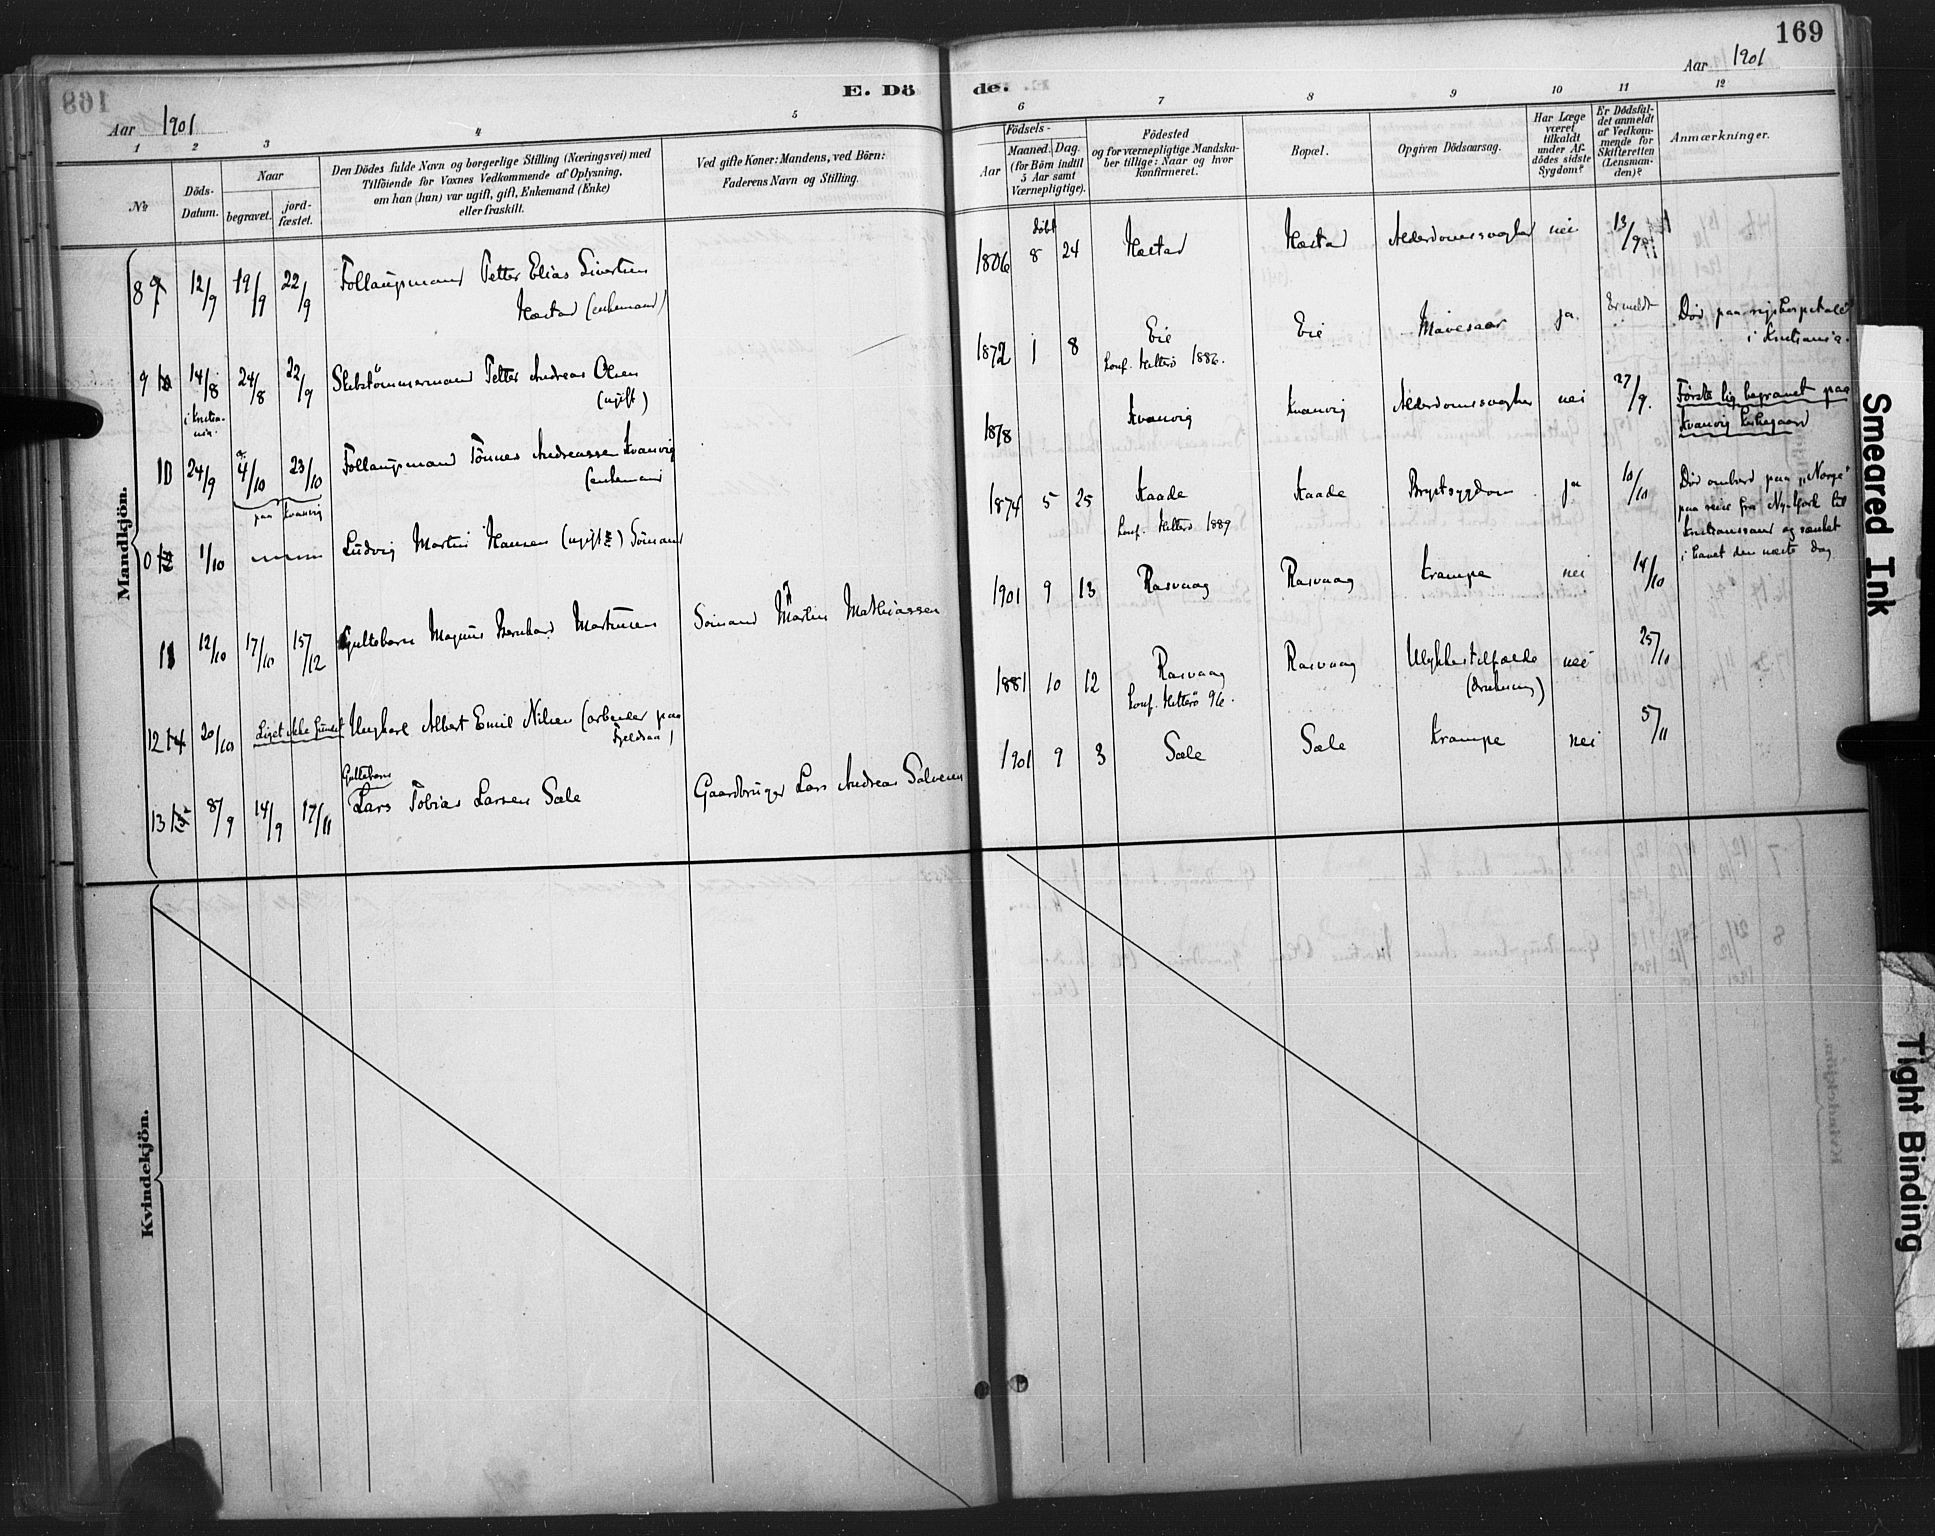 169
E. Dö de.
Aar 1901
Aar 1901
1 2 3 4 5
6 7 8 9 10 11 12
No
Döds-Datum.
Naar
begravet.
jord-fæstet.
Den Dödes fulde Navn og borgerlige Stilling (Næringsvei) med
Tilföiende for Voxnes Vedkommende af Oplysning,
om han (hun) var ugift, gift, Enkemand (Enke)
eller fraskilt.
Ved gifte Koner: Mandens, ved Börn:
Faderens Navn og Stilling.
Födsels-
Aar
Maaned. Dag.
(for Börn indtil
5 Aar samt
Værnepligtige).
Födested
og for værnepligtige Mandska-
ber tillige: Naar og hvor
konfirmeret.
Bopæl.
Opgiven Dödsaarsag.
Har Læge
været
tilkaldt
under Af-
dödes sidste
Sygdom?
Er Dödsfal-
det anmeldt
af Vedkom-
mende for
Skifteretten
(Lensman-
den)?
Anmærkninger.
Mandkjön.
8 12/9 19/9 22/9 Petter Elias Sivertsen
(enkemand)
1806 döbt 8 24 nei 13/9
9 14/8 24/8 22/9 Petter Andreas Olsen
(ugift)
1872 1 8 Eie Eie Mavesaar ja Er meldt Död paa rigshospitalet
Conf. Hitterö 1886. i Kristiania.
24/9 4/10 23/10 Tönnes Andreassen Kvanvig
(enkemand
paa Kvanvig
Kvanvig Kvanvig nei 27/9. Förste lig begravet paa
Kvanvig kirkegaard
1/10 Ludvig Martin Hansen (ugift) Sömand
1874 5 25 Kaade Kaade Brystsygdom ja 10/10 Död ombord paa "Norge"
Conf. Hitterö 1889 paa reise fra New-York til
Kristianssand og sænket
i havet den næste dag
11 12/10 17/10 15/12 Guttebarn Magnus Bernhard Martinsen Sömand Martin Mathiassen
1901 9 13 Rasvaag Rasvaag Krampe nei 14/10
12 20/10 Liget ikke fundet Ungkarl Albert Emil Nilsen (arbeider paa
1881 10 12 Rasvaag Rasvaag Ulykkestilfælde nei 25/10
Conf. Hitterö 96. (drukning)
Guttebarn
13 8/9 14/9 17/11 Lars Tobias Larsen Sæle Gaardbruger Lars Andreas Salvesen
1901 9 3 Sæle Sæle Krampe nei 5/11
Kvindekjön.
Smeared Ink
Tight Binding